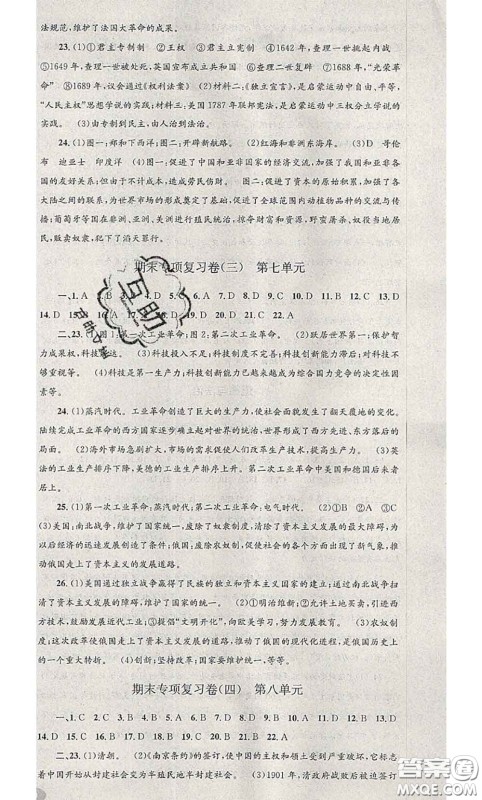 法规范,维护了法国大革命的成果。
23.(1)①君主专制制 ②王权 ③君主立宪制 ④1642年,查理一世挑起内战
⑤1649年,查理一世被处死,英国宣布成立共和国 ⑥查理二世复辟 ⑦1688年,“光荣革
命” ⑧1689年,议会通过《权利法案》 (2)材料二:《独立宣言》,是启蒙运动中自由、平等、
“人民主权”思想学说的实践;材料三:美国1787年联邦宪法,是启蒙运动中三权分立学说的
实践。 (3)由专制到民主,由人治到法治。
24.(1)图一:郑和下西洋;图二:开辟新航路。 (2)红海和非洲东海岸。 (3)D 哥伦
布 迪亚士 印度洋 (4)图一:促进了中国和亚非国家的经济交流,加强了我国和亚非各
国的友好关系;但同时,造成了劳民伤财。 图二:促进了资本的原始积累,加强了各
大陆之间的联系,为世界市场的形成奠定了基础,促进了全球范围内动植物品种的交流与
传播;葡萄牙等国在非洲、亚洲、美洲进行殖民统治,掠夺财富和资源,野蛮杀戮、奴役当地居
民,贩卖奴隶,犯下了滔天罪行。
期末专项复习卷(三) 第七单元
一、1. A 2. B 3. D 4. B 5. C 6. A 7. D 8. C 9. D 10. C 11. D 12. B 13. D
14. D 15. D 16. D 17. A 18. A 19. B 20. D 21. A 22. D
二、23.(1)图1:第一次工业革命;图2:第二次工业革命。 (2)跃居世界第一;保护智
力成果权,科技与工业紧密结合。 (3)科技投入不足;科技创新能力不强;对科技人才还不
够重视等。 (4)科技是第一生产力;科技创新能力已越来越成为综合国力竞争的决定性因
素等。
24.(1)蒸汽时代。工业革命创造了巨大的生产力,使社会面貌发生了翻天覆地的变化。
陆续完成工业革命的西方国家逐步确立起对世界的统治,世界形成了西方先进、东方落后的
局面。 (2)海外市场急剧扩大,市场需求促使人们改革生产技术,提高生产力。 (3)英
法的工业生产排序下降,美德的工业生产排序上升。第二次工业革命中美国和德国后来者
居上。
25.(1)第一次工业革命:蒸汽时代;第二次工业革命:电气时代。 (2)①B ②D ③A
(3)美国:南北战争,维护了国家统一,废除了奴隶制度,清除了资本主义发展的最大障碍,为
以后经济的迅速发展创造了条件;俄国:废除了农奴制,俄国由此出现了新气象,推
动俄国走上了资本主义发展的道路。
26.(1)美国通过独立战争赢得了民族的独立和资本主义国家的建立;通过南北战争扫
清了资本主义发展的障碍,维护了国家的统一。 (2)①明治维新;②允许土地买卖,引进西
方技术,鼓励发展近代工业;③提倡“文明开化”,向欧美学习,努力发展教育。 (3)农奴制
度;这次改革使俄国走上了资本主义发展的道路,推动了俄国的现代化进程,是俄国历史上
的一个重大转折。 (4)创新,坚持改革;国家统一、国家独立等。
期末专项复习卷(四) 第八单元
一、1. C 2. C 3. D 4. B 5. C 6. D 7. C 8. D 9. B 10. A 11. B 12. A 13. D
14. D 15. A 16. B 17. B 18. C 19. A 20. C 21. B 22. A
二、23.(1)清朝。 (2)《南京条约》的签订,使中国的主权和领土受到严重破坏,它标志
着中国开始从封建社会变为半殖民地半封建社会。 (3)1901年,清政府战败后被迫签订
互助
答案
MXQE.COM